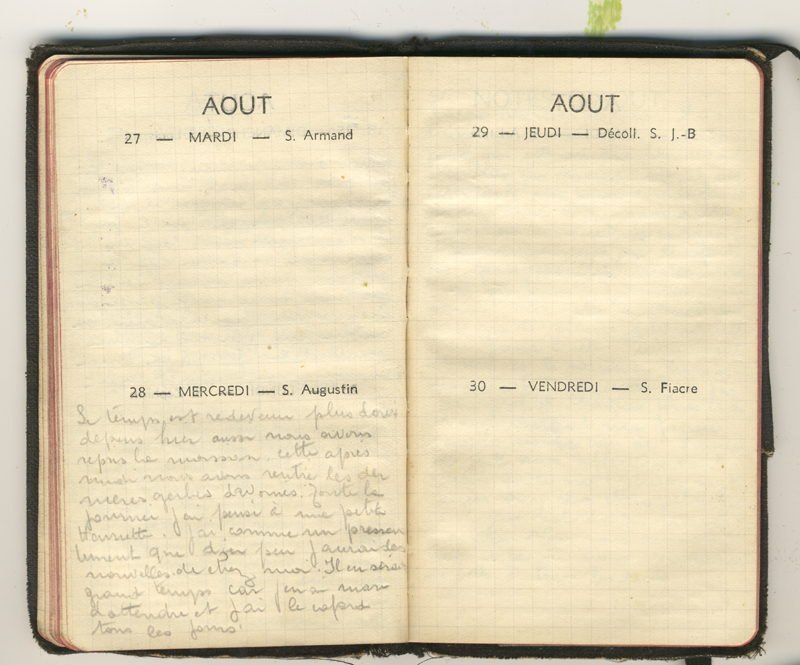 AOUT
27 — MARDI — S. Armand
28 — MERCREDI — S. Augustin
Le temps est redevenu plus doux
depuis hier aussi nous avons
repris la moisson. cette après
midi nous avons rentré les der
nières gerbes d'avoines. Toute la
journée j'ai pensé à ma petite
Henriette. J'ai comme un pressen
tement que d'ici peu j'aurai des
nouvelles de chez moi. Il en serait
grand temps car j'en ai marre
d'attendre et j'ai le cafard
tous les jours
AOUT
29 — JEUDI — Décoll. S. J.-B
30 — VENDREDI — S. Fiacre